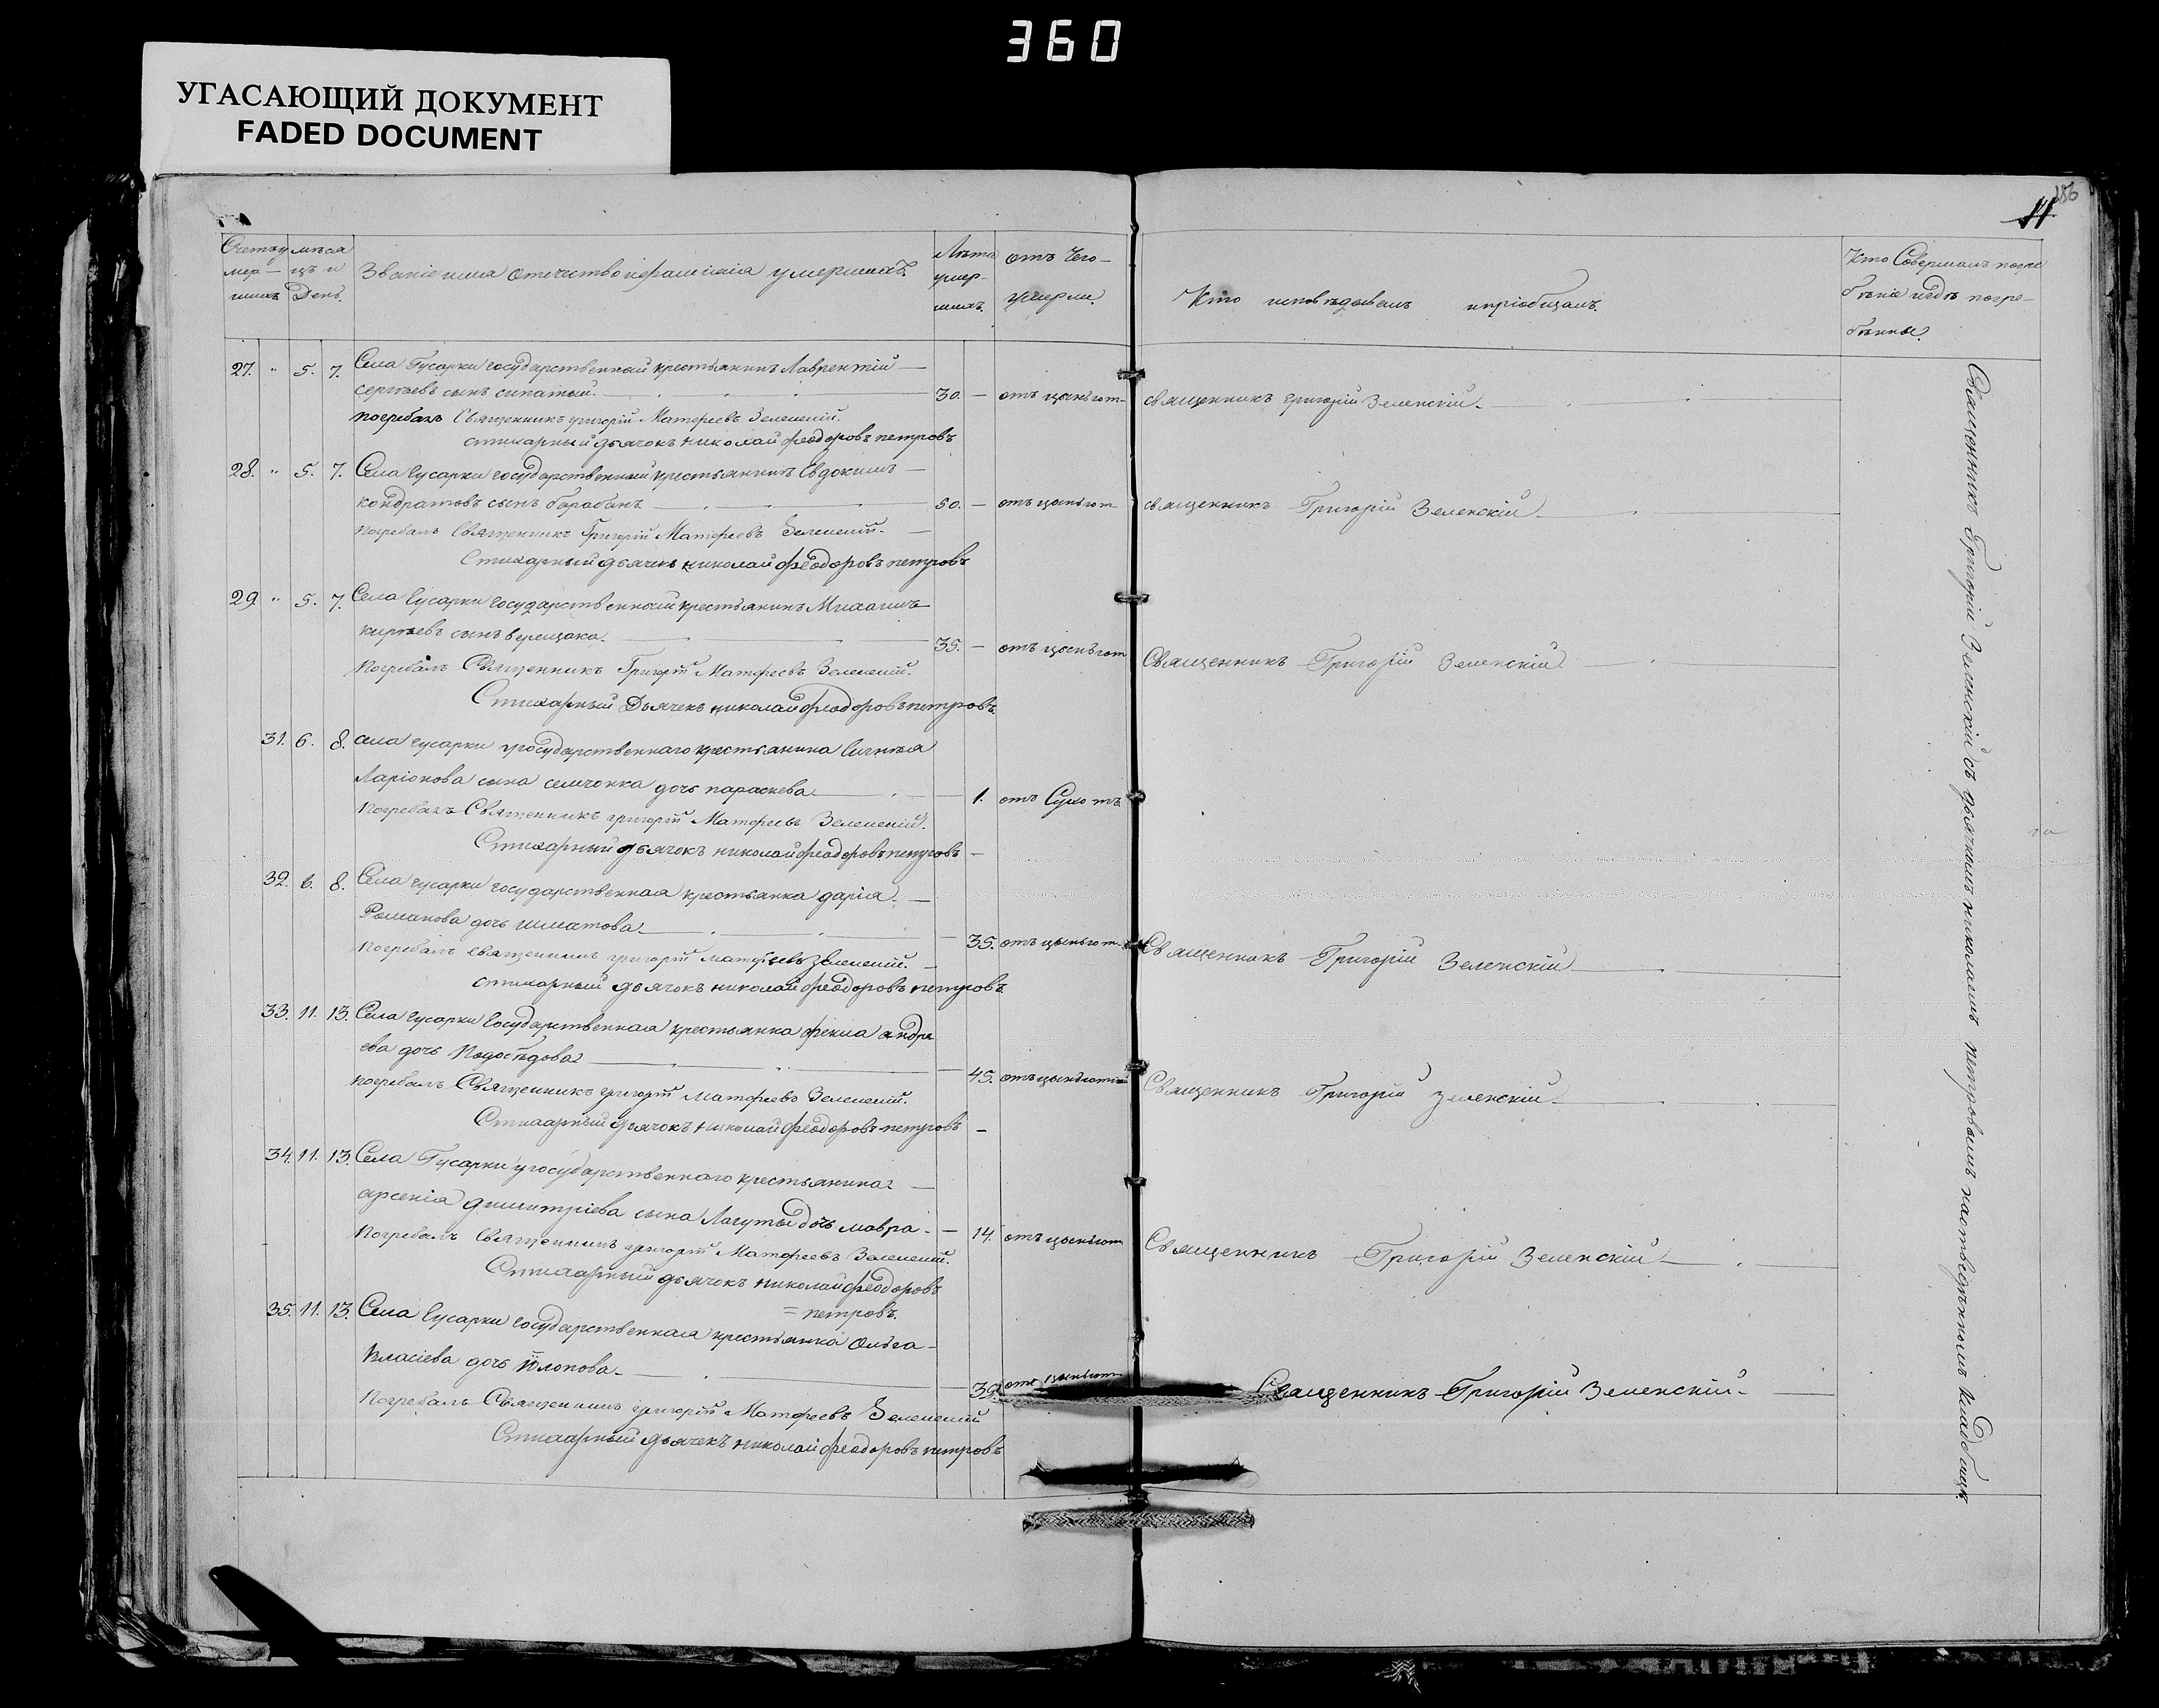 360
УГАСАЮЩИЙ ДОКУМЕНТ
FADED DOCUMENT
186
11
Счетъ умер- шихъ
мѣсяцъ и День.
Званіе имя отечество и фамилія умершихъ.
Лѣта умер- шихъ.
отъ Чего умерли.
Кто исповѣдывалъ и пріобщалъ.
Кто Совершалъ погребѣніе и гдѣ погребѣнны.
27. " 5. 7. Села Гусарки государственный крестьянинъ Лаврентій
сергѣевъ сынъ 30. отъ цынготы священникъ григорій Зеленскій.
погребалъ Священникъ григорій Матфеевъ Зеленскій.
стихарный дьячокъ николай феодоровъ петровъ
28. " 5. 7. Села гусарки государственный крестьянинъ Евдокимъ
кондратовъ сынъ барабанъ. 50. отъ цынгот священникъ Григорій Зеленскій
Погребалъ Священникъ Григорій Матфеевъ Зеленскій.
Стихарный дьячекъ николай феодоровъ петровъ
29 " 5. 7. Села гусарки государственный крестьянинъ Михаилъ
кирѣевъ сынъ верещака. 35. отъ цынгот Священникъ Григорій Зеленскій
Погребалъ Священникъ Григорій Матфеевъ Зеленскій.
Стихарный Дьячекъ николай феодоровъ петровъ.
31. 6. 8. села гусарки у государственнаго крестьянина
Ларіонова сына семчонка дочь параскева 1. отъ Сухотъ
Погребалъ Священникъ григорій Матфеевъ Зеленскій.
Стихарный дьячокъ николай феодоровъ петровъ
32. 6. 8. Села гусарки государственная крестьянка дарія
Романова дочь шматова 35. отъ цынгот Священникъ Григорій Зеленскій
Погребалъ священникъ григорій матфеевъ зеленскій.
стихарный дьячокъ николай феодоровъ петровъ
33. 11. 13. Села гусарки Государственная крестьянка фекла андре
ева дочь 45. отъ цынготы Священникъ Григорій зеленскій
погребалъ Священникъ григорій матфеевъ Зеленскій.
Стихарный дьячокъ николай феодоровъ петровъ
34. 11. 13. Села Гусарки у государственнаго крестьянина
арсенія димитріева сына Лагуты дочь мавра 14. отъ цынгот Священникъ Григорій Зеленскій
Погребалъ Священникъ григорій Матфеевъ Зеленскій.
Стихарный дьячокъ николай феодоровъ
= петровъ.
35. 11. 13. Села гусарки государственная крестьянка Ольга
Власіева дочь 35. отъ цынгот Священникъ Григорій Зеленскій
Погребалъ Священникъ григорій Матфеевъ Зеленскій
Стихарный дьячекъ николай феодоровъ петровъ
Священникъ Григорій Зеленскій съ дьячкомъ николаемъ петровымъ на отведѣнномъ Кладбищѣ.